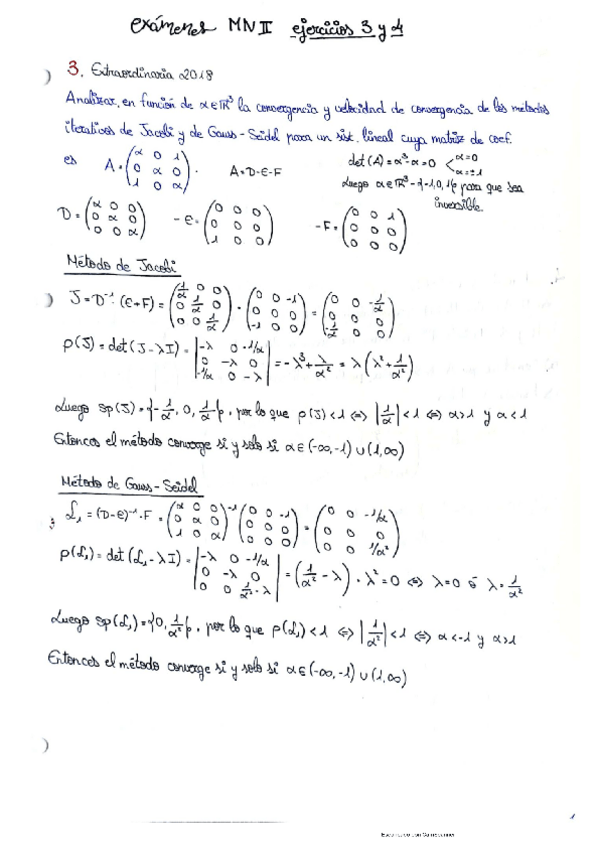 exámenes MN II ejercicios 3 y 4
3. Extraordinaria 2018
Analizar, en función de α∈ℝ³ la convergencia y velocidad de convergencia de los métodos
iterativos de Jacobi y de Gauss-Seidel para un sist. lineal cuya matriz de coef.
es A = (α 0 1; 0 α 0; 1 0 α). A=D-E-F det(A)=α³-α=0 < α=0 α=±1
Luego α∈ℝ³-{-1,0,1} para que sea
inversible.
D = (α 0 0; 0 α 0; 0 0 α) -E = (0 0 0; 0 0 0; 1 0 0) -F = (0 0 1; 0 0 0; 0 0 0)
Método de Jacobi
J = D⁻¹·(E+F) = (1/α 0 0; 0 1/α 0; 0 0 1/α) · (0 0 -1; 0 0 0; -1 0 0) = (0 0 -1/α; 0 0 0; -1/α 0 0)
p(J) = det(J-λI) = |-λ 0 -1/α; 0 -λ 0; -1/α 0 -λ| = -λ³ + λ/α² = λ(λ² + 1/α²)
Luego sp(J) = {-1/α, 0, 1/α}, por lo que ρ(J)<1 ⇔ |1/α|<1 ⇔ α>1 y α<1
Entonces el método converge si y solo si α∈(-∞,-1)∪(1,∞)
Método de Gauss-Seidel
L₁ = (D-E)⁻¹·F = (α 0 0; 0 α 0; 1 0 α)⁻¹ (0 0 -1; 0 0 0; 0 0 0) = (0 0 -1/α; 0 0 0; 0 0 1/α²)
p(L₁) = det(L₁-λI) = |-λ 0 -1/α; 0 -λ 0; 0 0 1/α²-λ| = (1/α² - λ)·λ² = 0 ⇔ λ=0 ó λ=1/α²
Luego sp(L₁) = {0, 1/α²}, por lo que ρ(L₁)<1 ⇔ |1/α²|<1 ⇔ α<-1 y α>1
Entonces el método converge si y solo si α∈(-∞,-1)∪(1,∞)
1
Escaneado con CamScanner